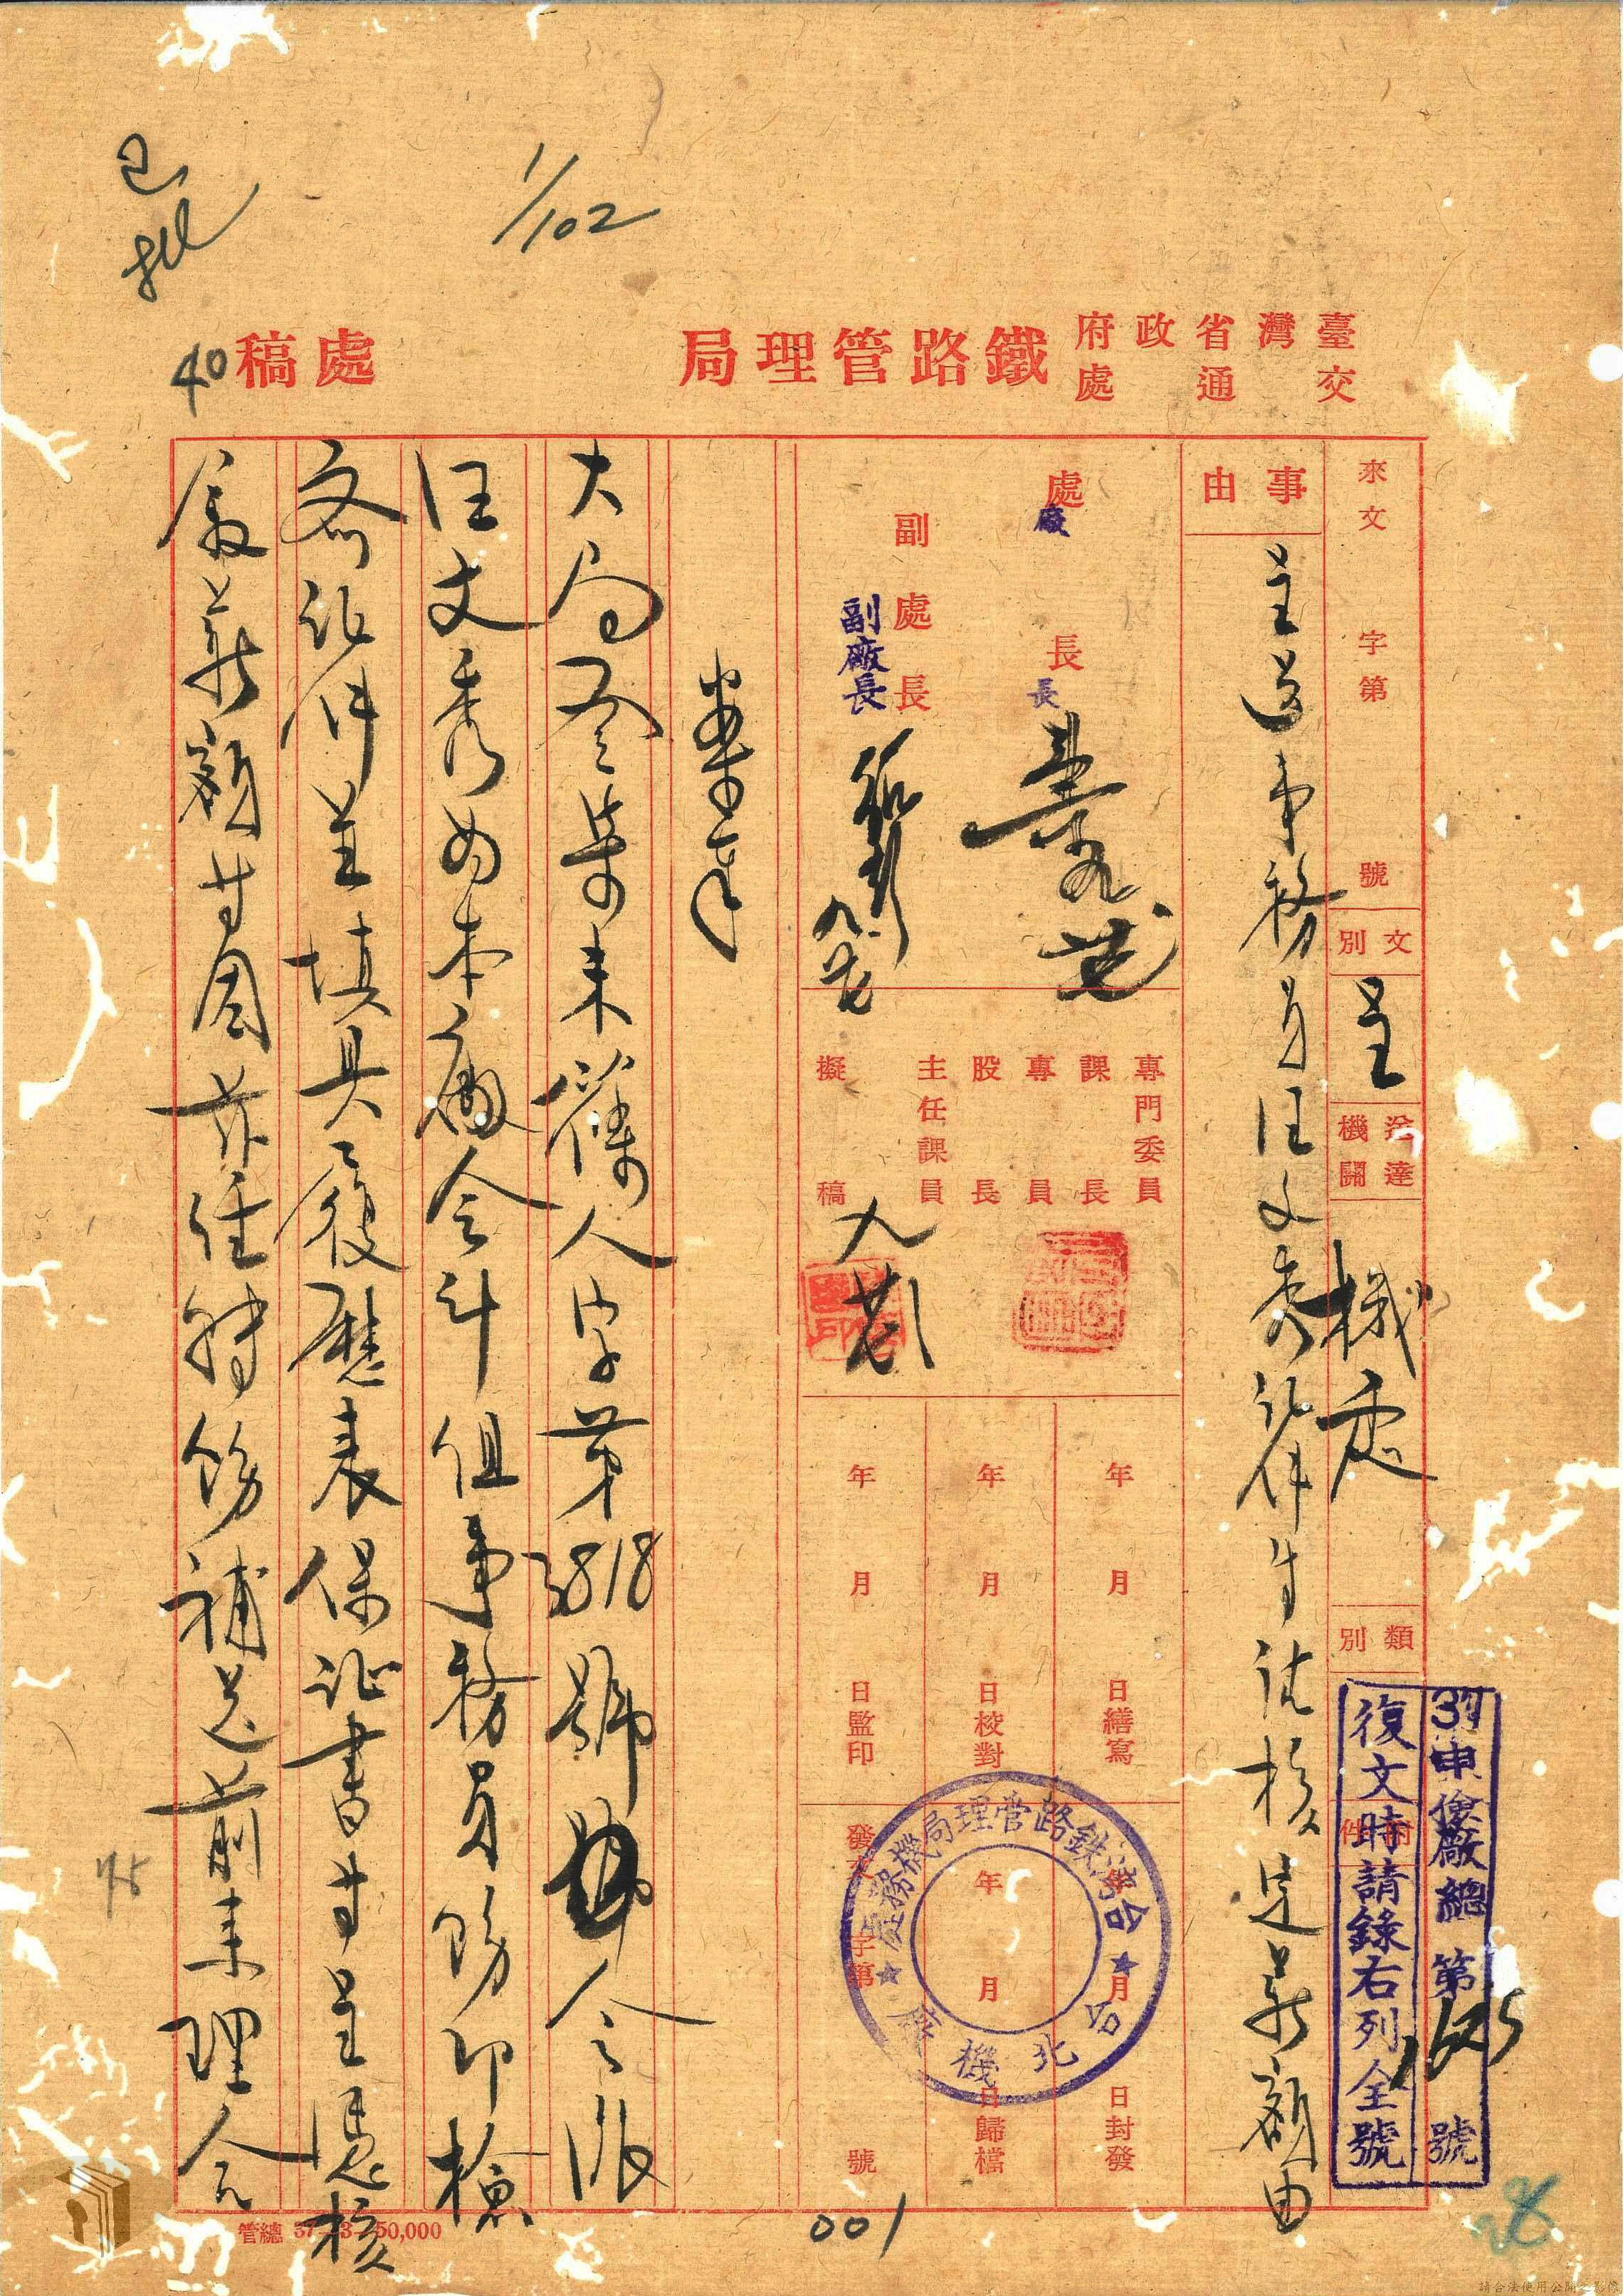 已批
1/102
臺灣省政府
交通處
鐵路管理局
處稿
40
來文 字第 號
文別
呈
送達機關
機處
類別
附件
37申儉廠總第1625號
復文時請錄右列全號
事由
呈送事務員汪文秀証件等請核定薪額由
處長
廠長
副處長
副廠長
專門委員
課長
專員
股長
主任課員
擬稿
年 月 日繕寫
年 月 日校對
年 月 日監印
年 月 日封發
年 月 日歸檔
發文 字第 號
台灣鉄路管理局機務處
台北機廠
案奉
大局
人字第3818號
令派
汪文秀為本廠會計組事務員飭即檢
齊証件並填具履歷表保证書等呈憑核
敘薪額等因
飭補送前來理合
管總 37 3 50,000
001
75
請合法使用公開之影像